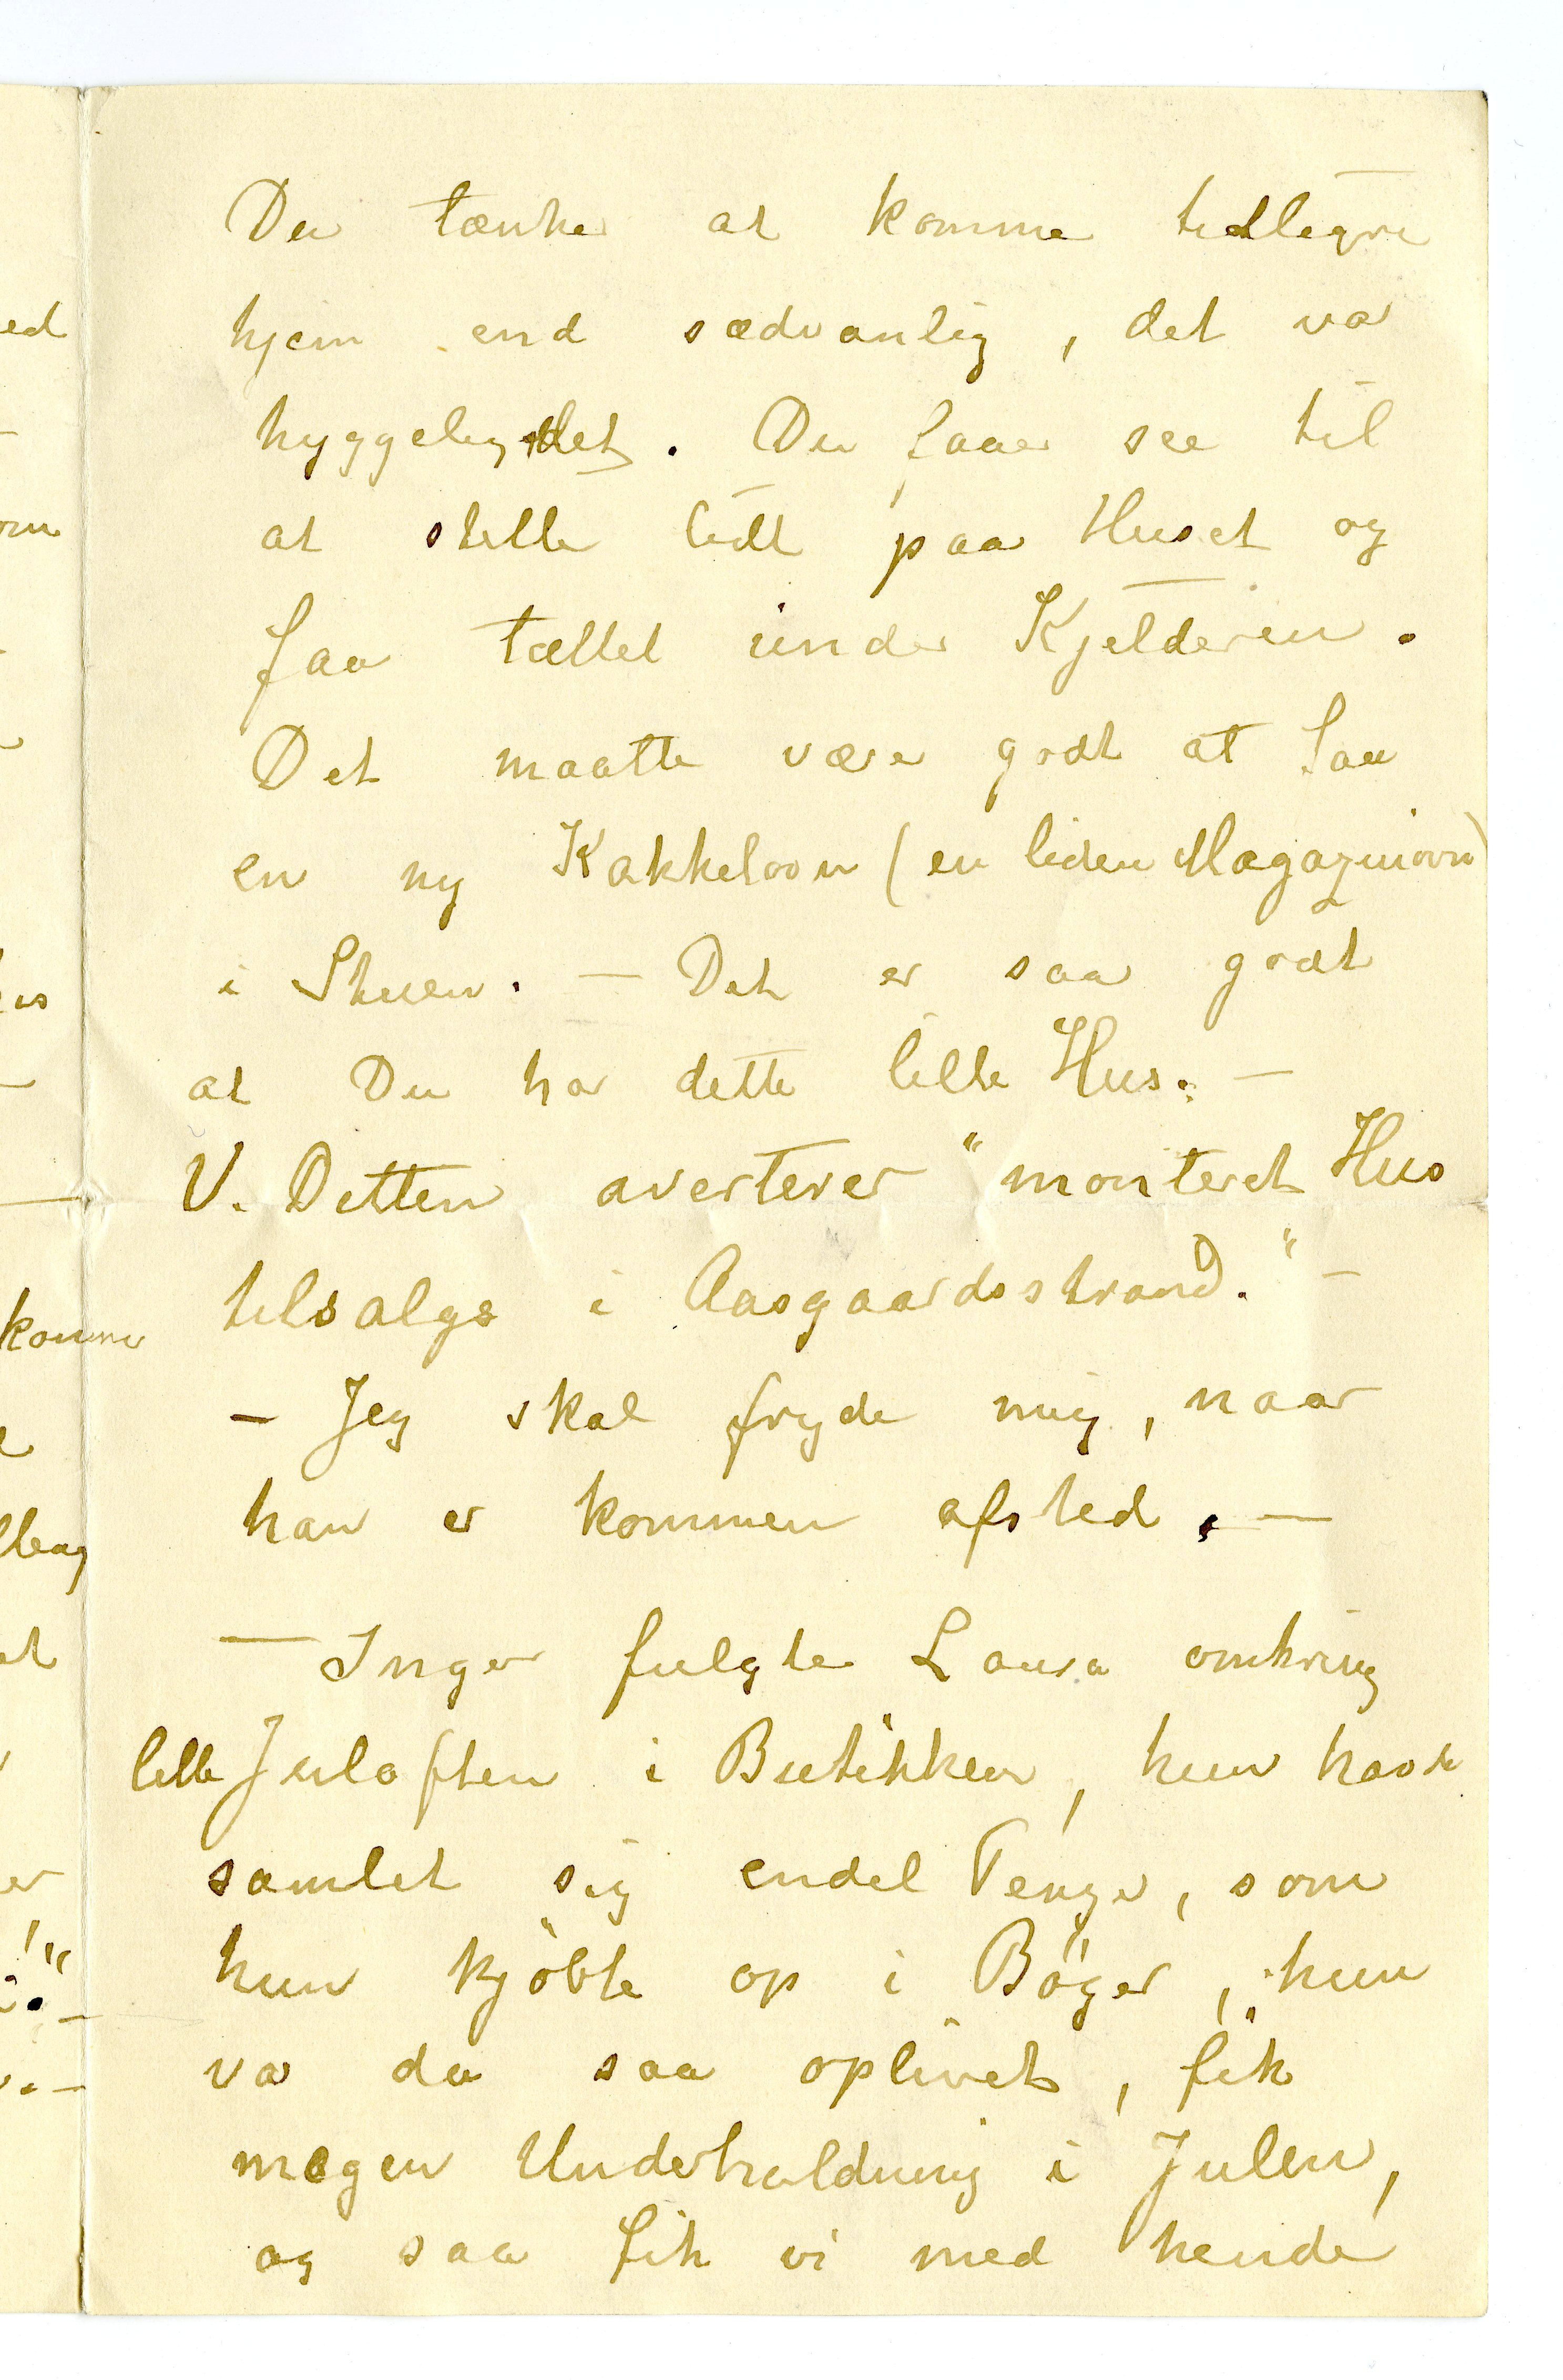 Du tænker at komme tidligere
hjem end sædvanlig, det var
hyggeligt det. Du faaer see til
at stelle lidt paa Huset og
faa tættet under Kjelderen.
Det maatte være godt at faa
en ny Kakkelovn (en liden Magazinovn)
i Stuen. — Det er saa godt
at Du har dette lille Hus. —
V. Ditten averterer "monteret Hus
tilsalgs i Aasgaardsstrand." —
— Jeg skal fryde mig, naar
han er kommen afsted. —
— Inger fulgte Laura omkring
lille Juleaften i Butikker, hun havde
samlet sig endel Penge, som
hun kjöbte op i Böger, hun
var da saa oplivet, fik
megen Underholdning i Julen,
og saa fik vi med hende
ed
om
komme
et
er